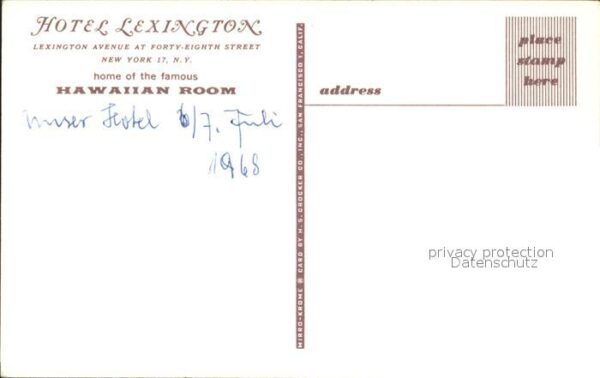 HOTEL LEXINGTON
LEXINGTON AVENUE AT FORTY-EIGHTH STREET
NEW YORK 17, N.Y.
home of the famous
HAWAIIAN ROOM
unser Hotel 6/7. Juli
1968
MIRRO-KROME ® CARD BY H. S. CROCKER CO., INC., SAN FRANCISCO 1, CALIF.
address
place
stamp
here
privacy protection
Datenschutz